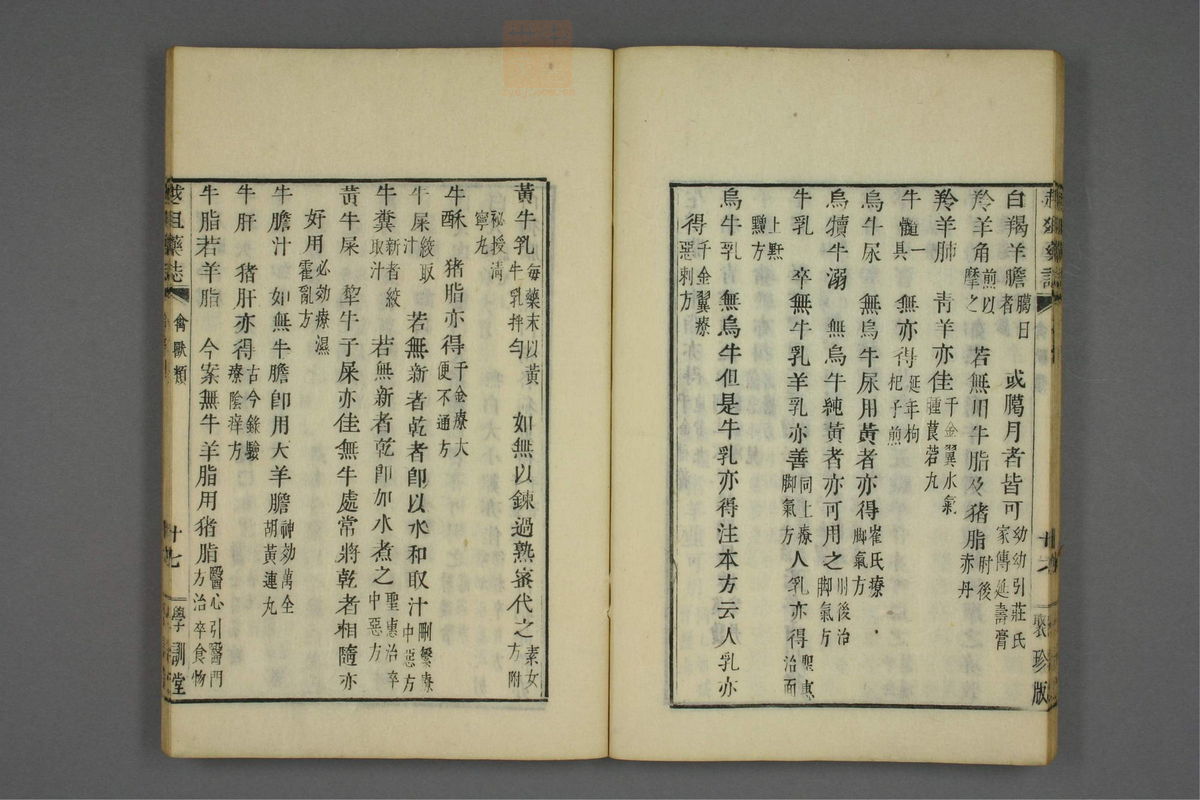 白羯羊膽臈日者 或臈月者皆可幼幼引莊氏家傳延壽膏
羚羊角煎以摩之 若無用牛脂及猪脂肘後赤丹
羚羊肺 青羊亦佳千金翼水氣腫莨菪丸
牛髓一具 無亦得延年枸杞子煎
烏牛尿 無烏牛尿用黄者亦得崔氏療脚氣方
烏犢牛溺 無烏牛純黄者亦可用之肘後治脚氣方
牛乳 卒無牛乳羊乳亦善同上療脚氣方人乳亦得聖惠治面
上䵟䵳方
烏牛乳 無烏牛但是牛乳亦得注本方云人乳亦
得千金翼療惡刺方
裴珍版
黄牛乳每藥末以黄牛乳拌勻 如無以錬過熟蜜代之素女方附
祕授淸寧丸
牛酥 猪脂亦得千金療大便不通方
牛屎絞取汁 若無新者乾者卽以水和取汁刪繁療中惡方
牛糞新者絞取汁 若無新者乾卽加水煮之聖惠治卒中惡方
黄牛屎 犂牛子屎亦佳無牛處常將乾者相隨亦
好用必効療濕霍亂方
牛膽汁 如無牛膽卽用大羊膽神効萬全胡黄連丸
牛肝 猪肝亦得古今錄驗療陰痒方
牛脂若羊脂 今案無牛羊脂用猪脂醫心引醫門方治卒食物
藥誌 禽獸類 十七 學訓堂